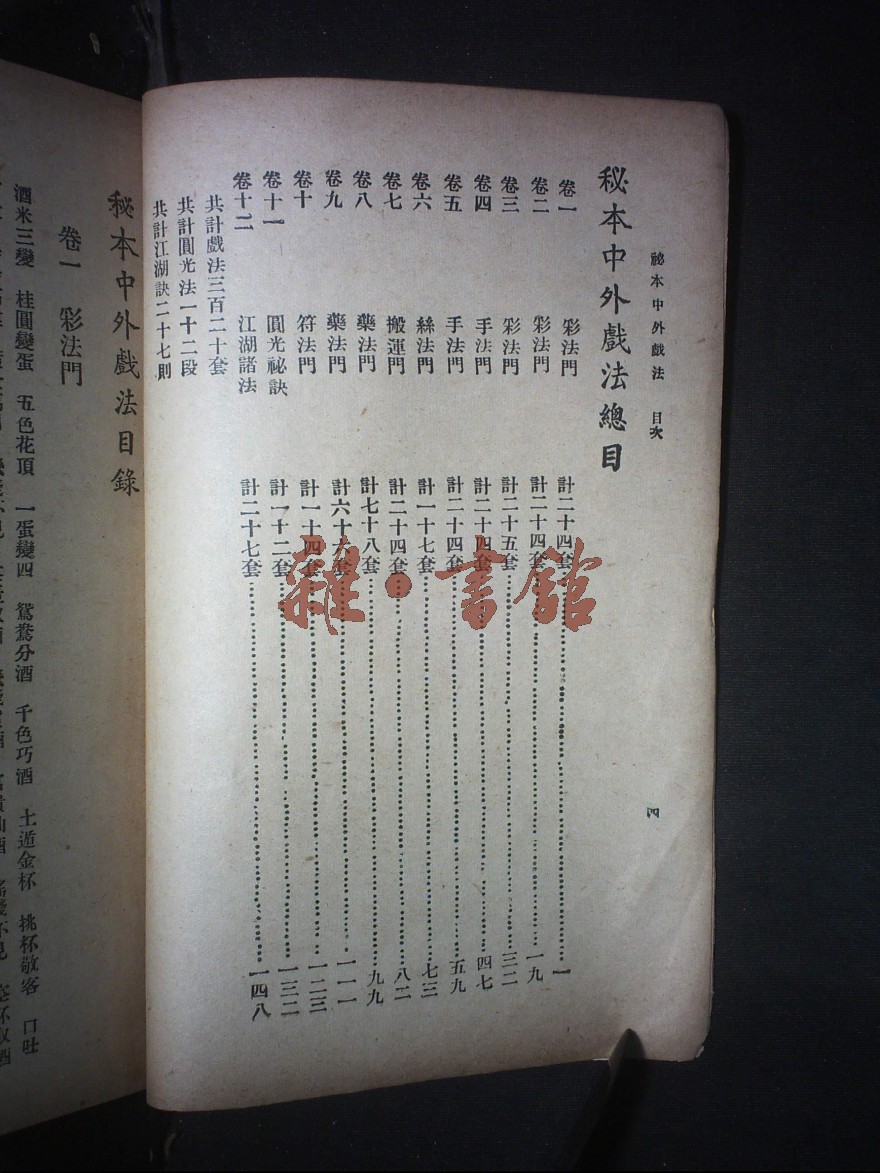 祕本中外戲法　目次
四
秘本中外戲法總目
卷一　彩法門　計二十四套……一
卷二　彩法門　計二十四套……一九
卷三　彩法門　計二十五套……三二
卷四　手法門　計二十四套……四七
卷五　手法門　計二十四套……五九
卷六　絲法門　計一十七套……七三
卷七　搬運門　計二十四套……八二
卷八　藥法門　計七十八套……九九
卷九　藥法門　計六十六套……一一一
卷十　符法門　計一十四套……一二三
卷十一　圓光祕訣　計一十二套……一三二
卷十二　江湖諸法　計二十七套……一四八
共計戲法三百二十套
共計圓光法一十二段
共計江湖訣二十七則
秘本中外戲法目錄
卷一　彩法門
酒米三變　桂圓變蛋　五色花頂　一蛋變四　鴛鴦分酒　千色巧酒　土遁金杯　挑杯敬客　口吐
雜·書館